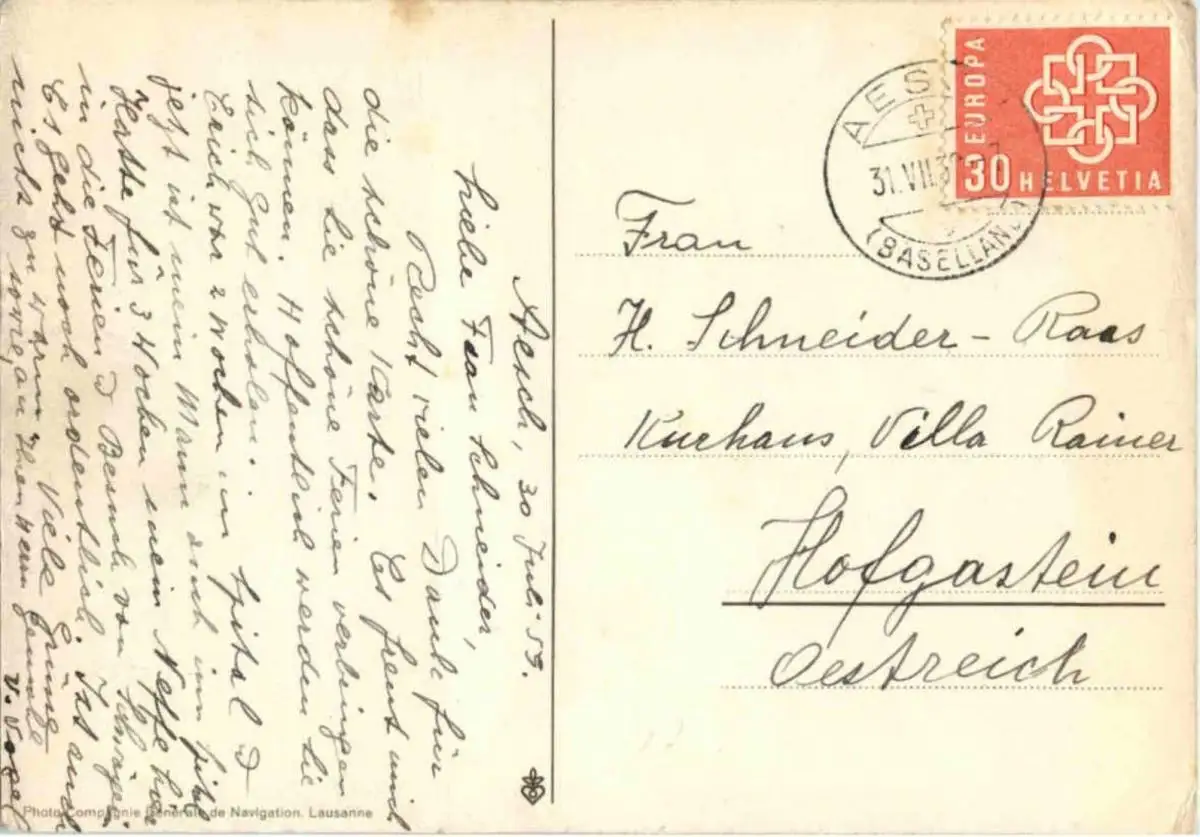 Aesch, 30 Juli 59.
Liebe Frau Schneider,
Recht vielen Dank für
die schöne Karte. Es freut mich
dass Sie schöne Ferien verbringen
können. Hoffentlich werden Sie
sich gut erholen.
Erich war 2 Wochen im Spital &
jezt ist mein Mann auch im Spital
Hatte für 3 Wochen mein Neffe hier
in die Ferien & Besuch von
Es geht noch ordentlich. Ist auch
nicht zu warm Viele Grüsse
sowie an Ihren Herrn Gemahl
V. Vogel
Photo Compagnie Générale de Navigation. Lausanne
EUROPA
30 HELVETIA
AESCH
31.VII.
(BASELLAND)
Frau
H. Schneider-Raas
Kurhaus, Villa Rainer
Hofgastein
Oestreich